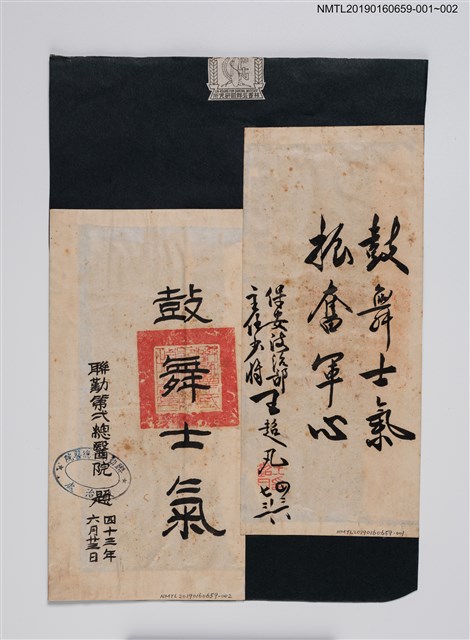 NMTL20190160659-001~002
鼓舞士氣
振奮軍心
保安政治部
主任少將
王超凡
NMTL20190160659-001
鼓舞士氣
聯勤第弍總醫院 題
四十三年
六月廿三日
NMTL20190160659-002